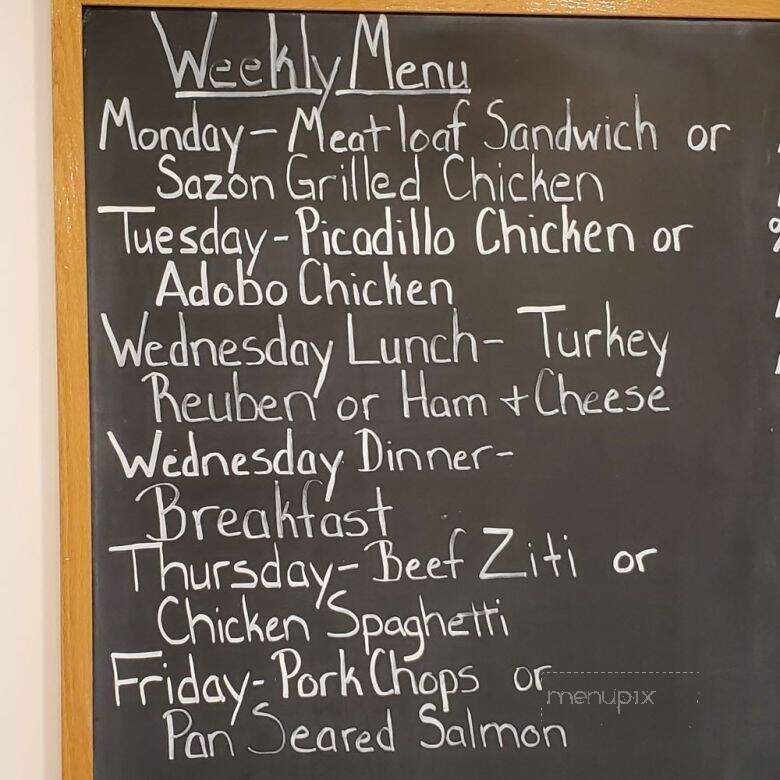 Weekly Menu
Monday - Meatloaf Sandwich or
Sazon Grilled Chicken
Tuesday - Picadillo Chicken or
Adobo Chicken
Wednesday Lunch - Turkey
Reuben or Ham + Cheese
Wednesday Dinner -
Breakfast
Thursday - Beef Ziti or
Chicken Spaghetti
Friday - Pork Chops or
menupix
Pan Seared Salmon